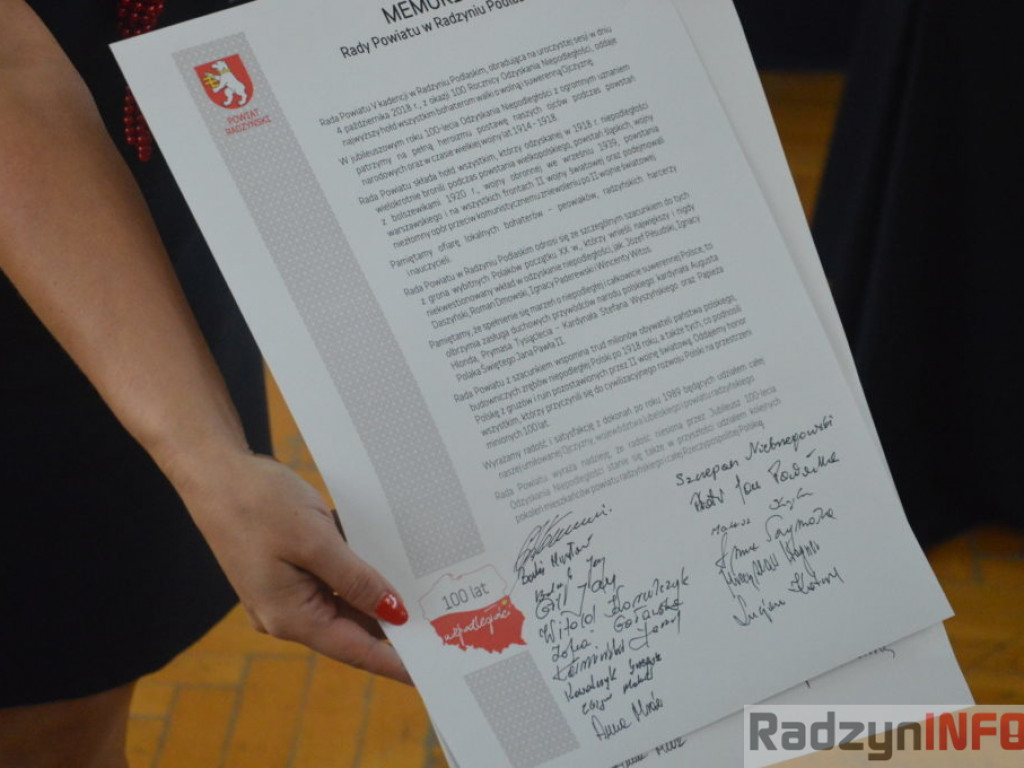 Rady Powiatu w Radzyniu
POWIAT
RADZYŃSKI
Rada Powiatu V kadencji w Radzyniu Podlaskim, obradująca na uroczystej sesji w dniu
4 października 2018 r., z okazji 100 Rocznicy Odzyskania Niepodległości, oddaje
najwyższy hołd wszystkim bohaterom walki o wolną i suwerenną Ojczyznę.
W jubileuszowym roku 100-lecia Odzyskania Niepodległości z ogromnym uznaniem
patrzymy na pełną heroizmu postawę naszych ojców podczas powstań
narodowych oraz w czasie wielkiej wojny lat 1914 - 1918.
Rada Powiatu składa hołd wszystkim, którzy odzyskanej w 1918 r. niepodległości
wielokrotnie bronili podczas powstania wielkopolskiego, powstań śląskich, wojny
z bolszewikami 1920 r., wojny obronnej we wrześniu 1939, powstania
warszawskiego i na wszystkich frontach II wojny światowej oraz podejmowali
niezłomny opór przeciw komunistycznemu zniewoleniu po II wojnie światowej.
Pamiętamy ofiarę lokalnych bohaterów - peowiaków, radzyńskich harcerzy
i nauczycieli.
Rada Powiatu w Radzyniu Podlaskim odnosi się ze szczególnym szacunkiem do tych
z grona wybitnych Polaków początku XX w., którzy wnieśli największy i nigdy
niekwestionowany wkład w odzyskanie niepodległości, jak: Józef Piłsudski, Ignacy
Daszyński, Roman Dmowski, Ignacy Paderewski i Wincenty Witos.
Pamiętamy, że spełnienie się marzeń o niepodległej i całkowicie suwerennej Polsce, to
olbrzymia zasługa duchowych przywódców narodu polskiego, kardynała Augusta
Hlonda, Prymasa Tysiąclecia - Kardynała Stefana Wyszyńskiego oraz Papieża
Polaka Świętego Jana Pawła II.
Rada Powiatu z szacunkiem wspomina trud milionów obywateli państwa polskiego,
budowniczych zrębów niepodległej Polski po 1918 roku, a także tych, co podnosili
Polskę z gruzów i ruin pozostawionych przez II wojnę światową. Oddajemy honor
wszystkim, którzy przyczynili się do cywilizacyjnego rozwoju Polski na przestrzeni
minionych 100 lat.
Wyrażamy radość i satysfakcję z dokonań po roku 1989 będących udziałem całej
naszej umiłowanej Ojczyzny, województwa lubelskiego i powiatu radzyńskiego.
Rada Powiatu wyraża nadzieję, że radość niesiona przez Jubileusz 100-lecia
Odzyskania Niepodległości stanie się także w przyszłości udziałem kolejnych
pokoleń mieszkańców powiatu radzyńskiego i całej Rzeczypospolitej Polskiej.
Szczepan Niebrzegowski
100 lat
niepodległość
Witold Kowalczyk
Zofia
Kowalczyk
Anna Mróz
Lucjan
RadzynINFO